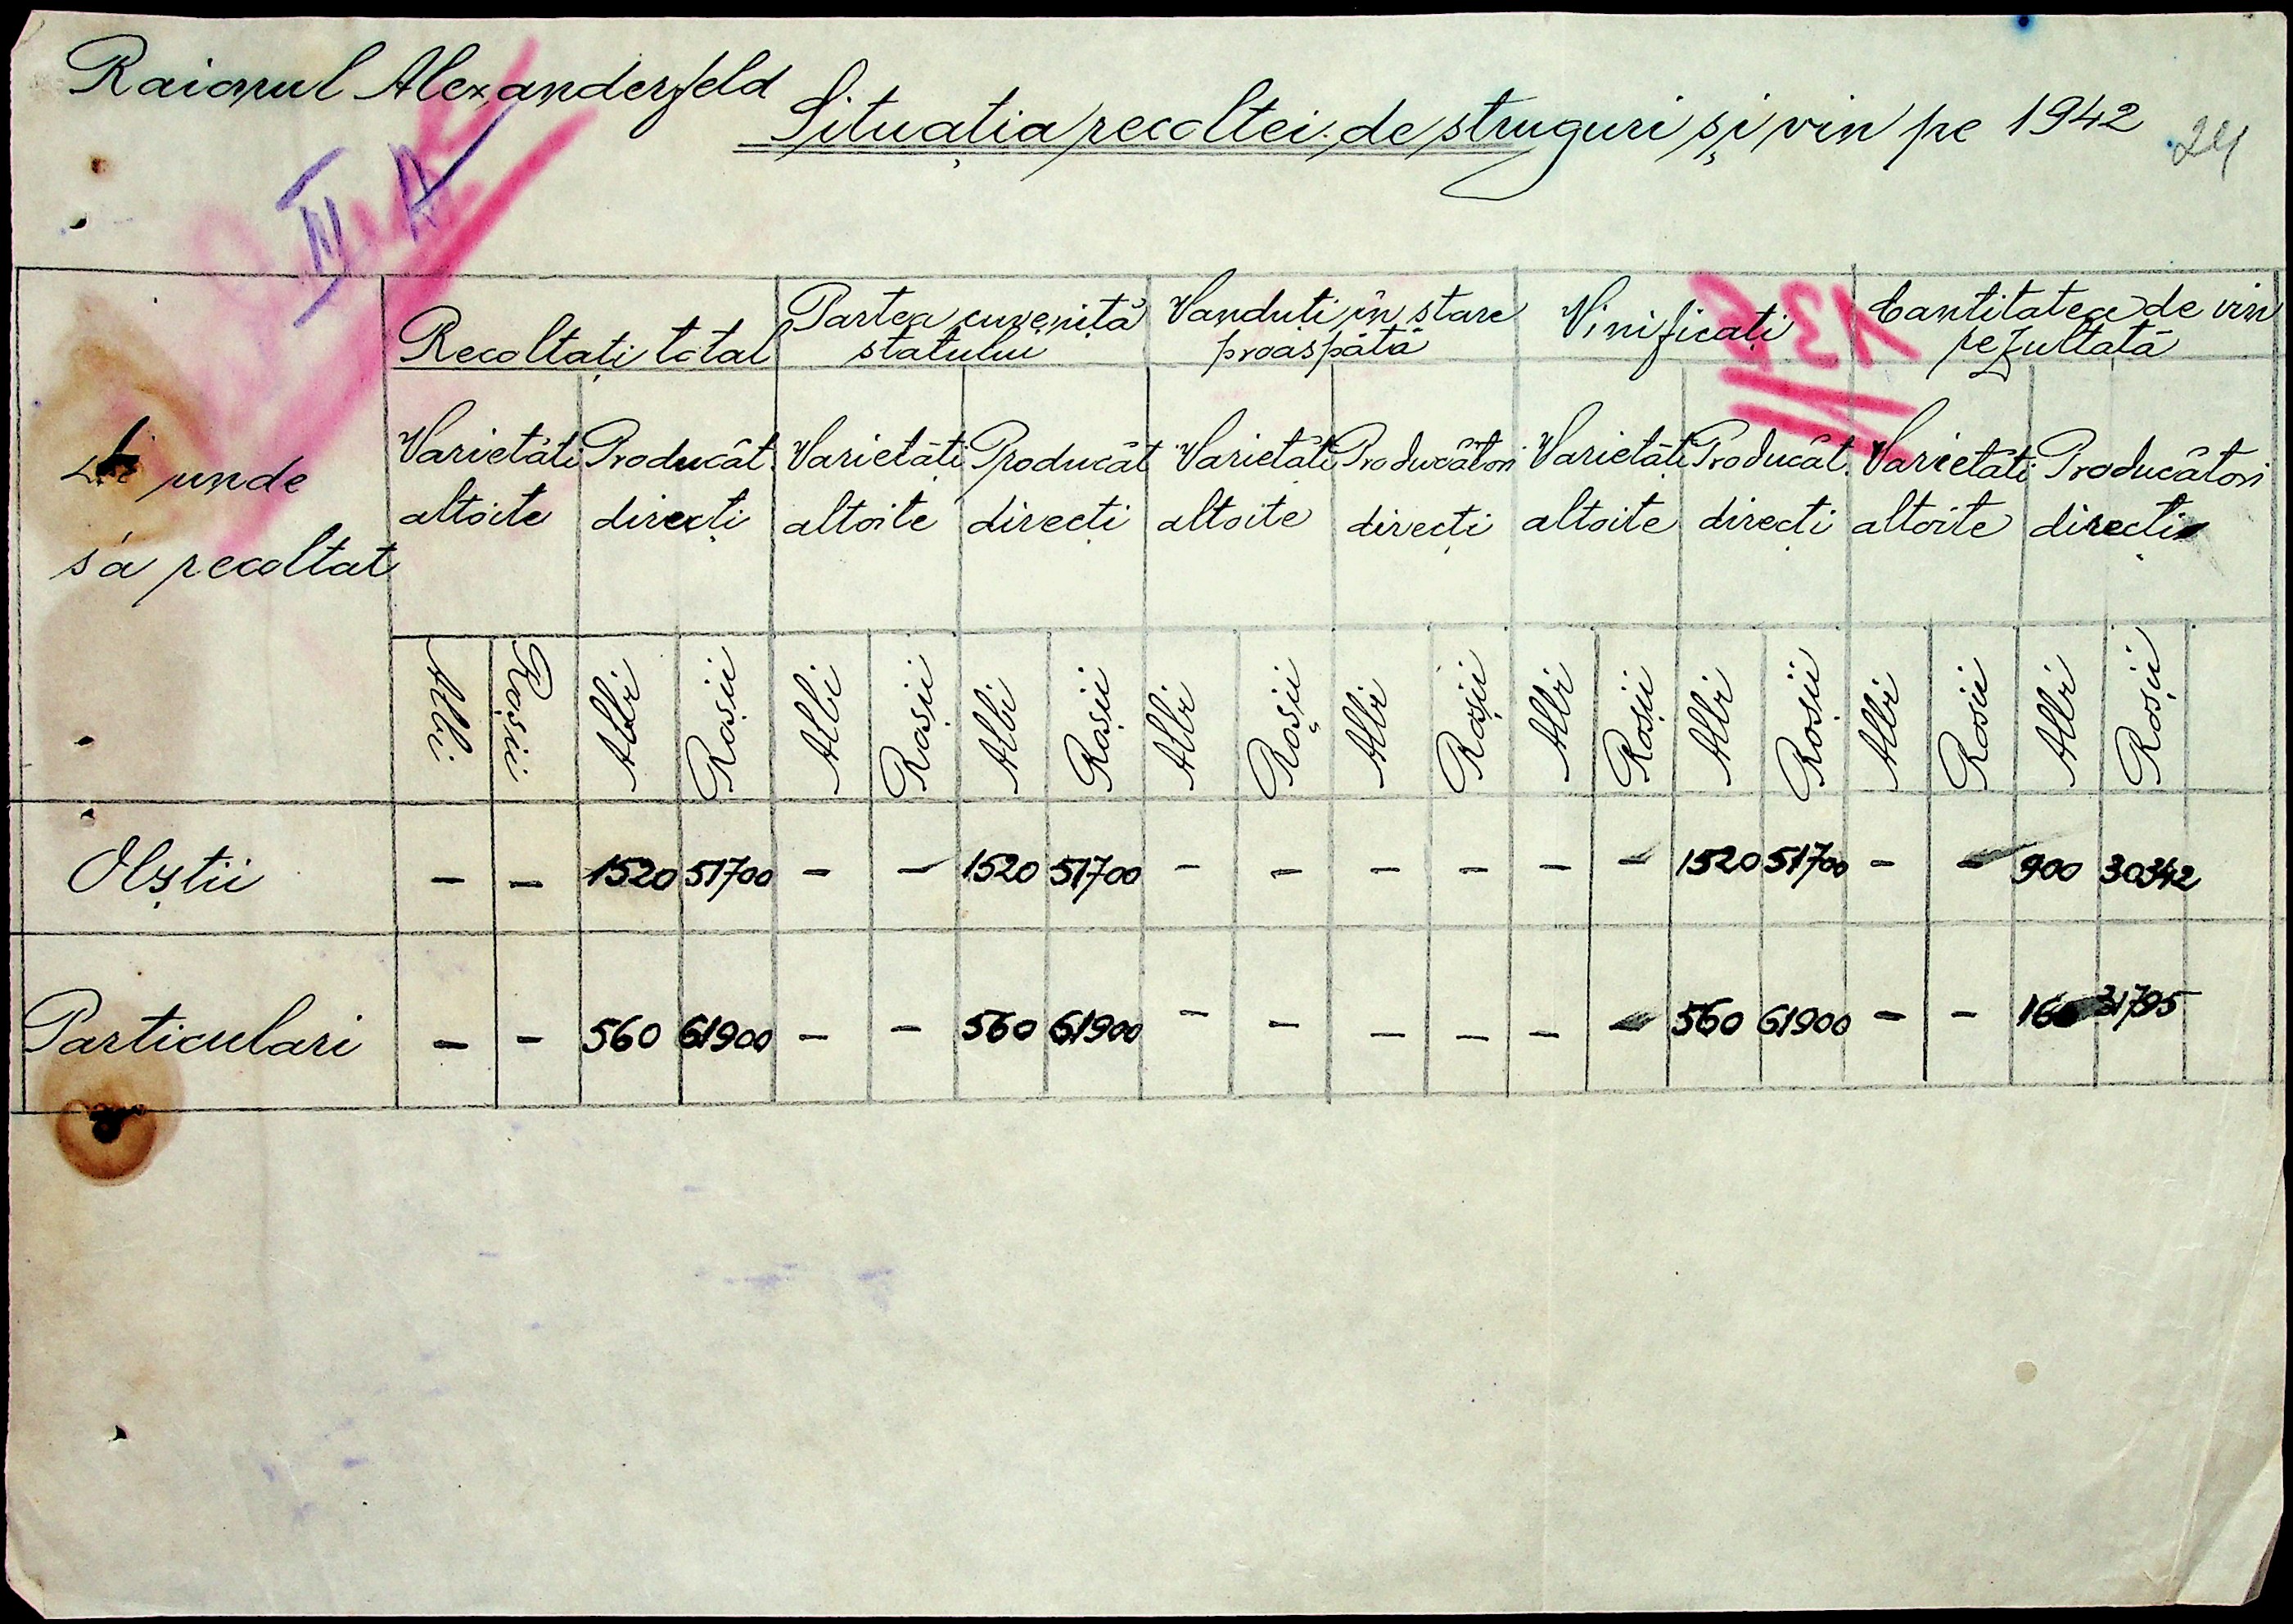 Raionul Alexanderfeld
Situația recoltei de struguri și vin pe 1942
24
III A
De unde
s'a recoltat
Recoltați total
Partea cuvenită
statului
Vanduți în stare
proaspătă
Vinificați
Cantitatea de vin
rezultată
Varietăți
altoite
Producăt.
direcți
Varietăți
altoite
Producăt
direcți
Varietăți
altoite
Producători
direcți
Varietăți
altoite
Producăt.
direcți
Varietăți
altoite
Producători
direcți
Albi Roșii Albi Roșii Albi Roșii Albi Roșii Albi Roșii Albi Roșii Albi Roșii Albi Roșii Albi Rosii Albi Roșii
Obștii - - 1520 51700 - - 1520 51700 - - - - - - 1520 51700 - - 900 30342
Particulari - - 560 61900 - - 560 61900 - - - - - - 560 61900 - - 31795